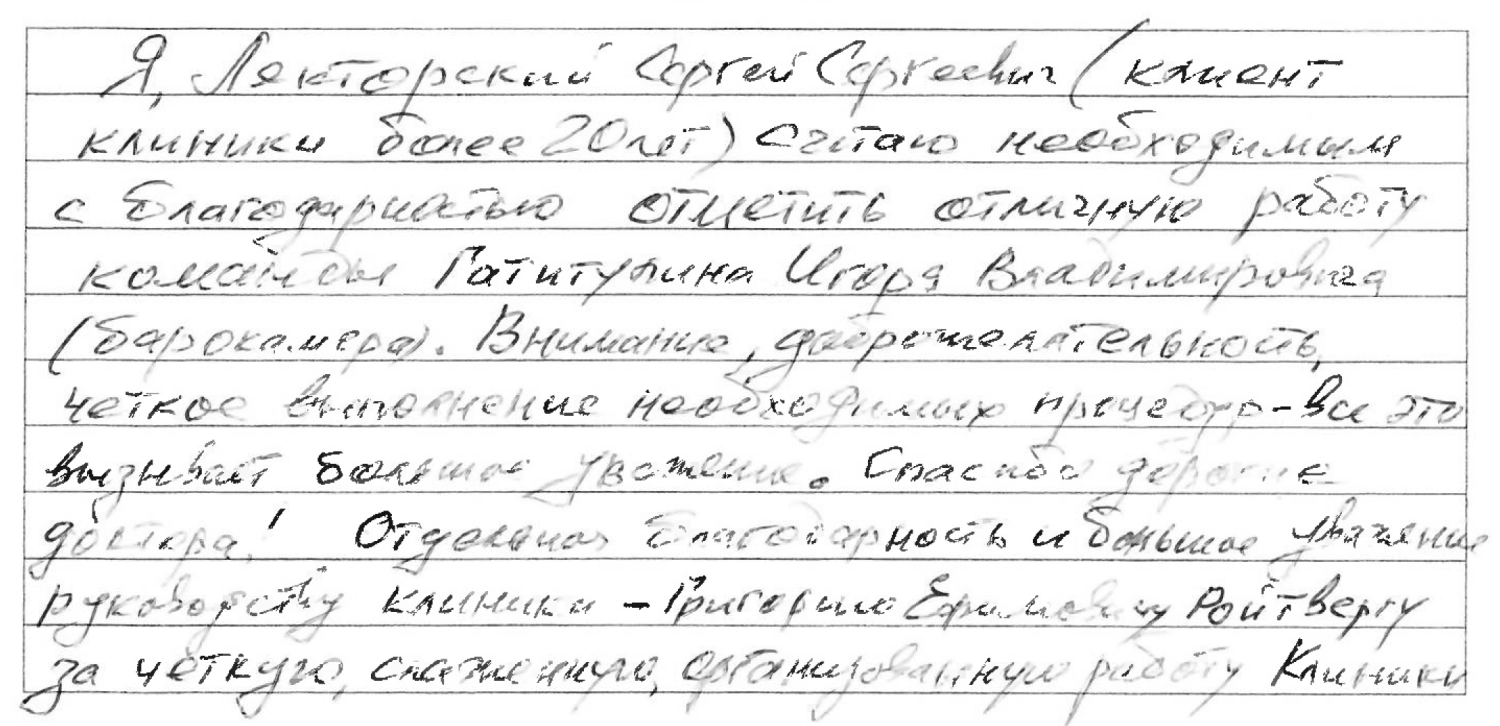 Я, Лекторский Сергей Сергеевич (клиент
клиники более 20 лет) считаю необходимым
с благодарностью отметить отличную работу
команды Гатитулина Игоря Владимировича
(барокамера). Внимание, доброжелательность,
четкое выполнение необходимых процедур - все это
вызывает большое уважение. Спасибо дорогие
доктора! Отдельная благодарность и большое уважение
руководству клиники - Григорию Ефимовичу Ройтбергу
за четкую, слаженную, организованную работу Клиники